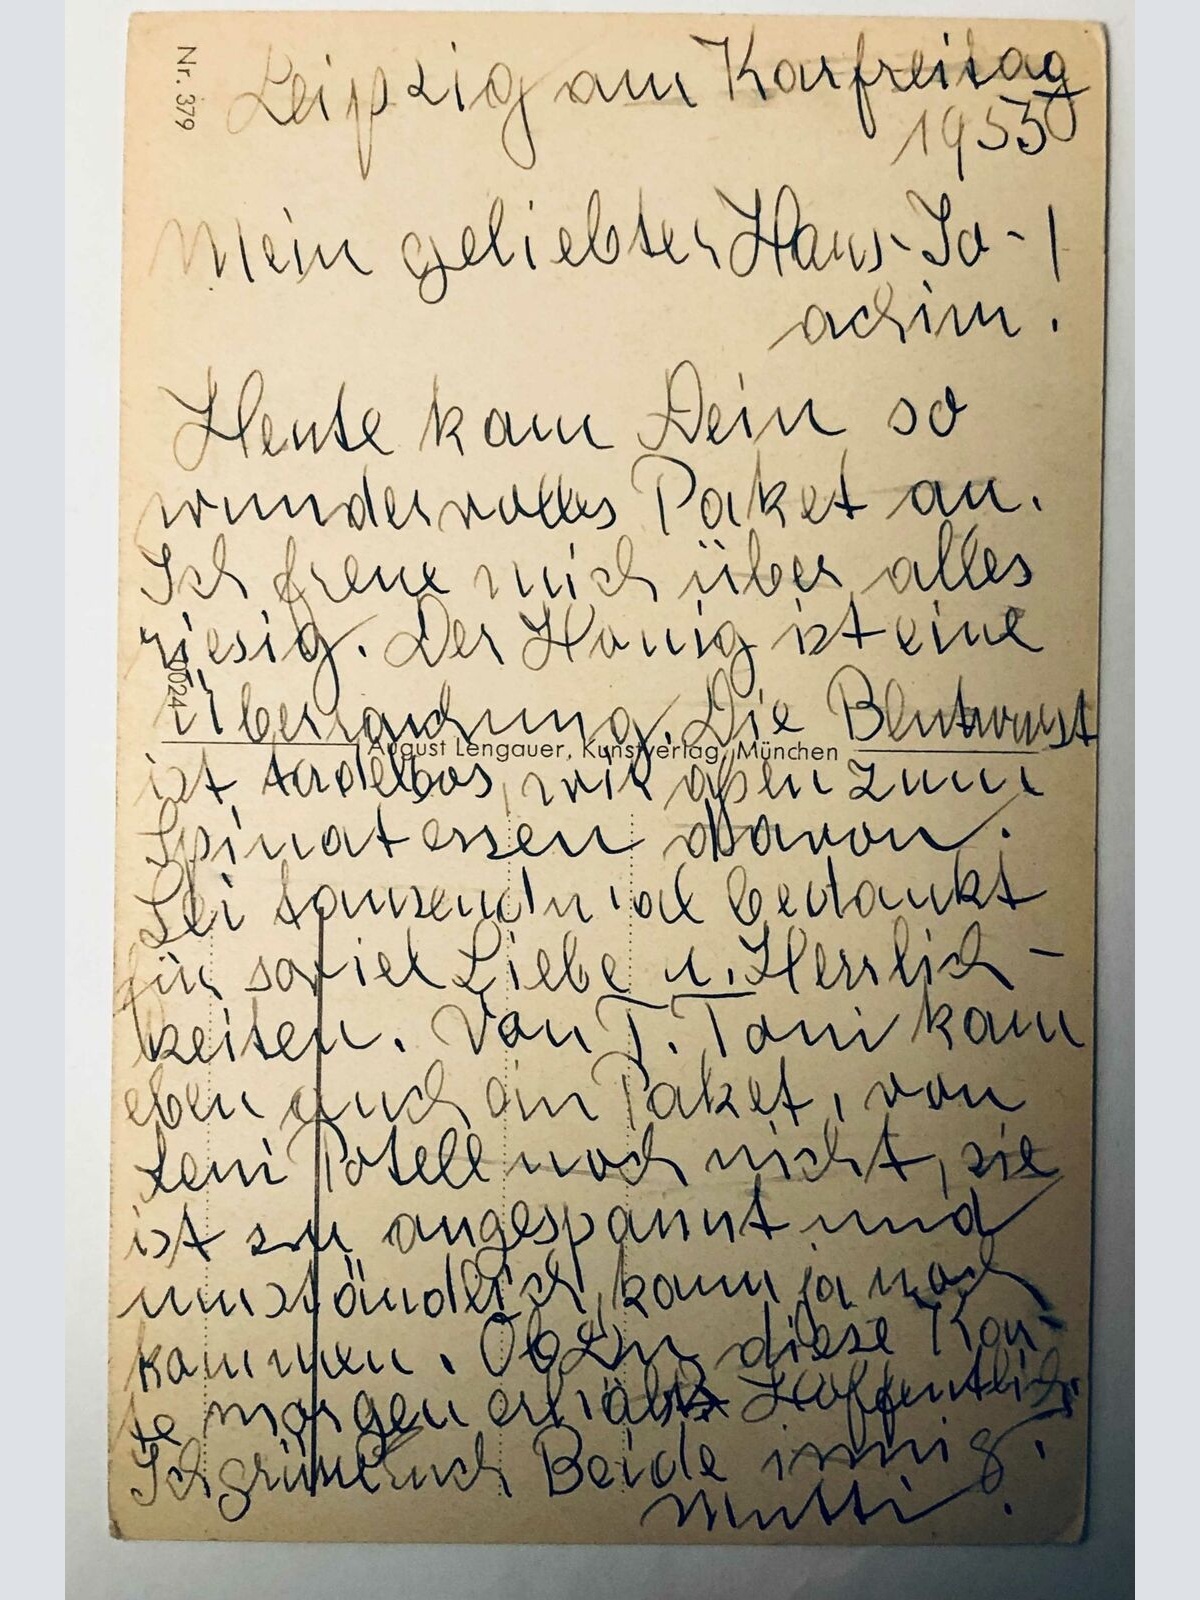 Nr. 379
Leipzig am Karfreitag
1953
Mein geliebter Hans-Jo-!
achim.
Heute kam Dein so
wundervolles Paket an.
Ich freue mich über alles
riesig. Der Honig ist eine
0024
Überraschung. Die Blutwurst
August Lengauer, Kunstverlag, München
ist tadellos, wir aßen zum
Spinatessen davon.
Sei tausendmal bedankt
für soviel Liebe u. Herrlich-
keiten. Von T. Toni kam
eben auch ein Paket, von
Leni Potell noch nicht, sie
ist zu angespannt und
umständlich, kann ja noch
kommen. Ob Du diese Kar-
te morgen erhälst Hoffentlich.
Ich grüsse Euch Beide innig.
Mutti.